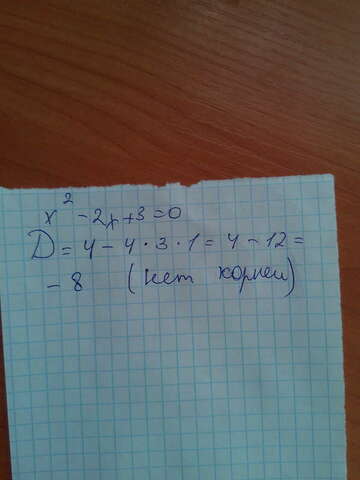 x² - 2x + 3 = 0
D = 4 - 4 · 3 · 1 = 4 - 12 =
- 8 (нет корней)